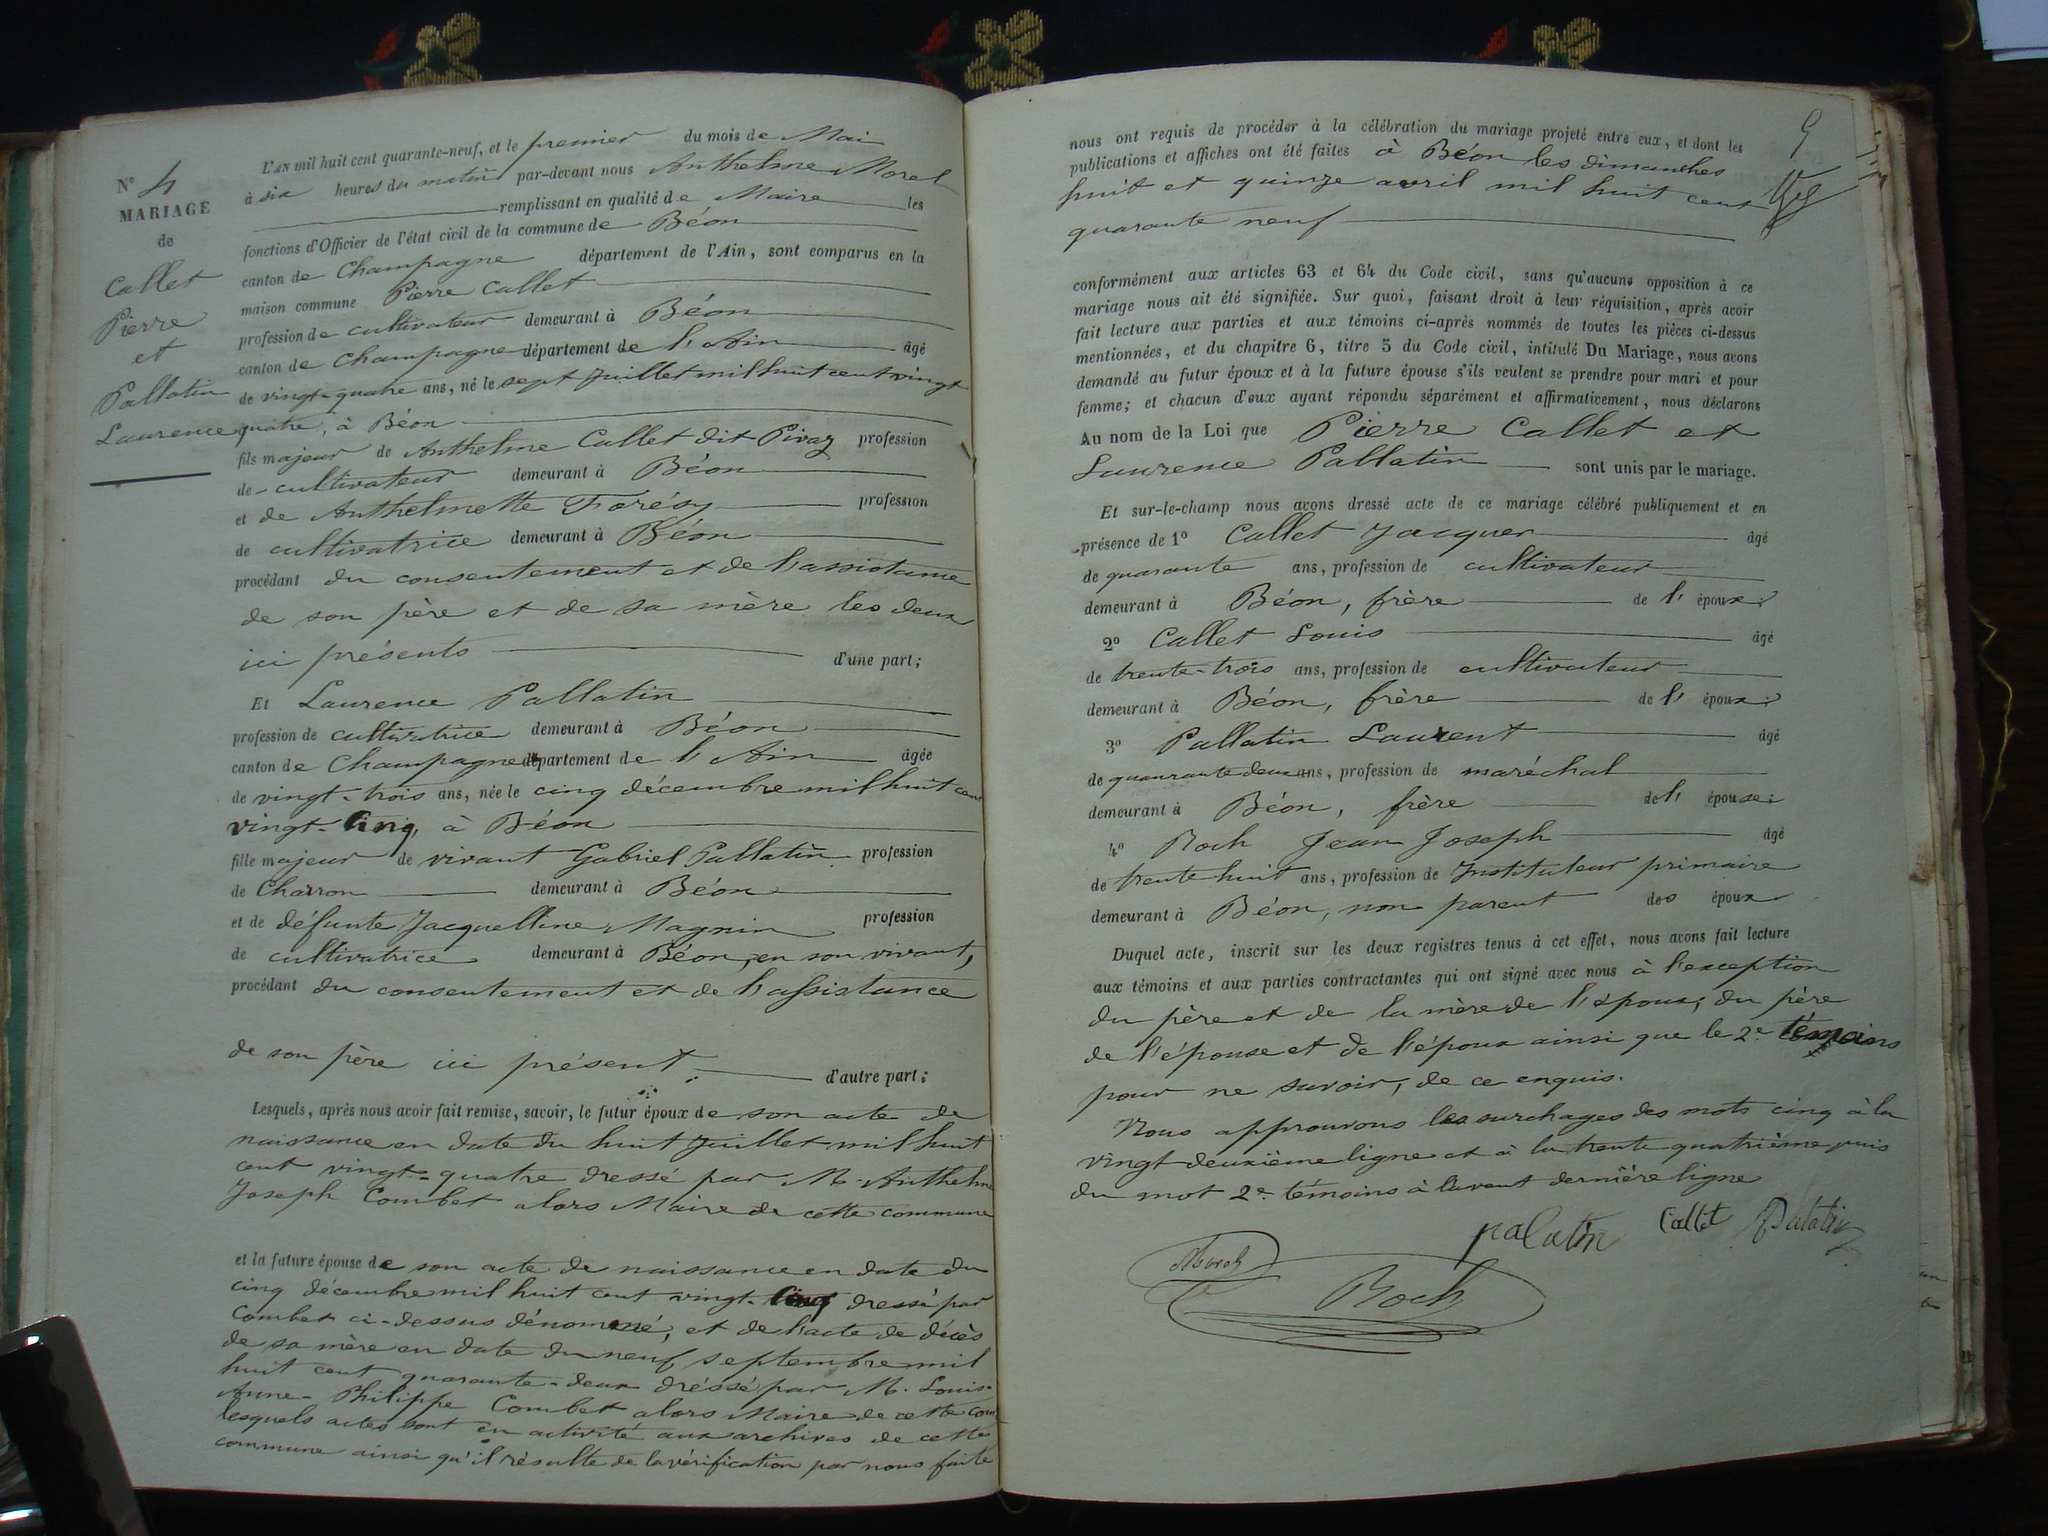 N° 4
MARIAGE
de
Callet
Pierre
et
Pallatin
Laurence
L'AN mil huit cent quarante-neuf, et le premier du mois de Mai
à six heures du matin par-devant nous Anthelme Morel
remplissant en qualité de Maire les
fonctions d'Officier de l'état civil de la commune de Béon
canton de Champagne département de l'Ain, sont comparus en la
maison commune Pierre Callet
profession de cultivateur demeurant à Béon
canton de Champagne département de l'Ain âgé
de vingt-quatre ans, né le sept Juillet mil huit cent vingt
quatre, à Béon
fils majeur de Anthelme Callet dit Pivaz profession
de cultivateur demeurant à Béon
et de Anthelmette Forésy profession
de cultivatrice demeurant à Béon
procédant du consentement et de l'assistance
de son père et de sa mère les deux
ici présents d'une part;
Et Laurence Pallatin
profession de cultivatrice demeurant à Béon
canton de Champagne département de l'Ain âgée
de vingt-trois ans, née le cinq décembre mil huit cent
vingt-cinq, à Béon
fille majeur de vivant Gabriel Pallatin profession
de Charron demeurant à Béon
et de défunte Jacquelline Magnin profession
de cultivatrice demeurant à Béon, en son vivant,
procédant du consentement et de l'assistance
de son père ici présent d'autre part;
Lesquels, après nous avoir fait remise, savoir, le futur époux de son acte de
naissance en date du huit Juillet mil huit
cent vingt-quatre dressé par M. Anthelme
Joseph Combet alors Maire de cette commune
et la future épouse de son acte de naissance en date du
cinq décembre mil huit cent vingt-cinq dressé par
Combet ci-dessus dénommé, et de l'acte de décès
de sa mère en date du neuf septembre mil
huit cent quarante-deux dréssé par M. Louis-
Anne-Philippe Combet alors Maire de cette com
lesquels actes sont en activité aux archives de cette
commune ainsi qu'il résulte de la vérification par nous faite
9
nous ont requis de procéder à la célébration du mariage projeté entre eux, et dont les
publications et affiches ont été faites à Béon les dimanches
huit et quinze avril mil huit cent
quarante neuf
conformément aux articles 63 et 64 du Code civil, sans qu'aucune opposition à ce
mariage nous ait été signifiée. Sur quoi, faisant droit à leur réquisition, après avoir
fait lecture aux parties et aux témoins ci-après nommés de toutes les pièces ci-dessus
mentionnées, et du chapitre 6, titre 5 du Code civil, intitulé Du Mariage, nous avons
demandé au futur époux et à la future épouse s'ils veulent se prendre pour mari et pour
femme; et chacun d'eux ayant répondu séparément et affirmativement, nous déclarons
Au nom de la Loi que Pierre Callet et
Laurence Pallatin sont unis par le mariage.
Et sur-le-champ nous avons dressé acte de ce mariage célébré publiquement et en
présence de 1° Callet Jacques âgé
de quarante ans, profession de cultivateur
demeurant à Béon, frère de l'époux;
2° Callet Louis âgé
de trente-trois ans, profession de cultivateur
demeurant à Béon, frère de l'époux;
3° Pallatin Laurent âgé
de quanrante deux ans, profession de maréchal
demeurant à Béon, frère de l'épouse;
4° Roch Jean Joseph âgé
de trente huit ans, profession de Instituteur primaire
demeurant à Béon, non parent des époux
Duquel acte, inscrit sur les deux registres tenus à cet effet, nous avons fait lecture
aux témoins et aux parties contractantes qui ont signé avec nous à l'exception
du père et de la mère de l'époux, du père
de l'épouse et de l'époux ainsi que le 2e témoins
pour ne savoir, de ce enquis.
Nous approuvons les surchages des mots cinq à la
vingt deuxième ligne et à la trente quatrième puis
du mot 2e témoins à l'avant dernière ligne
palatin Callet Palatin
Morel
Roch